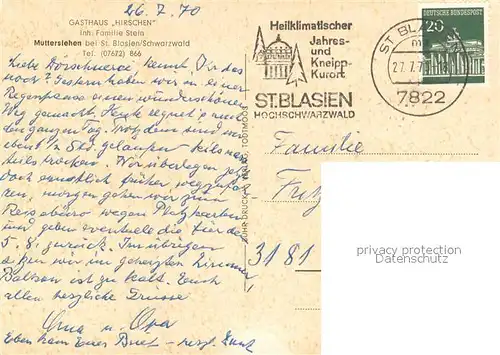 26.7.70
GASTHAUS „HIRSCHEN"
Inh. Familie Stein
Mutterslehen bei St. Blasien/Schwarzwald
Tel. (07672) 866
Liebe kennt Ihr das
noch? Gestern haben wir in einer
Regenpause einen wunderschönen
Weg gemacht. Heute regnet's
den ganzen Tag. Trotzdem sind wir
2 Std. gelaufen teils
teils trocken. Wir überlegen
doch früher wegzufah
ren, morgen gehen wir zum
Reisebüro wegen Platzkarten
und geben eventuelle die für den
5. 8. zurück. Im übrigen
wir im geheizten Zimmer
Balkon ist zu kalt. Euch
allen herzliche Grüsse
Oma u. Opa
Eben kam Euer Brief - herzl. Dank
TODTMOOS
Heilklimatischer
Jahres-
und
Kneipp-
Kurort
ST. BLASIEN
HOCHSCHWARZWALD
ST. BLASIEN
27.7.7
7822
DEUTSCHE BUNDESPOST
20
Familie
Fritz
3181
privacy protection
Datenschutz